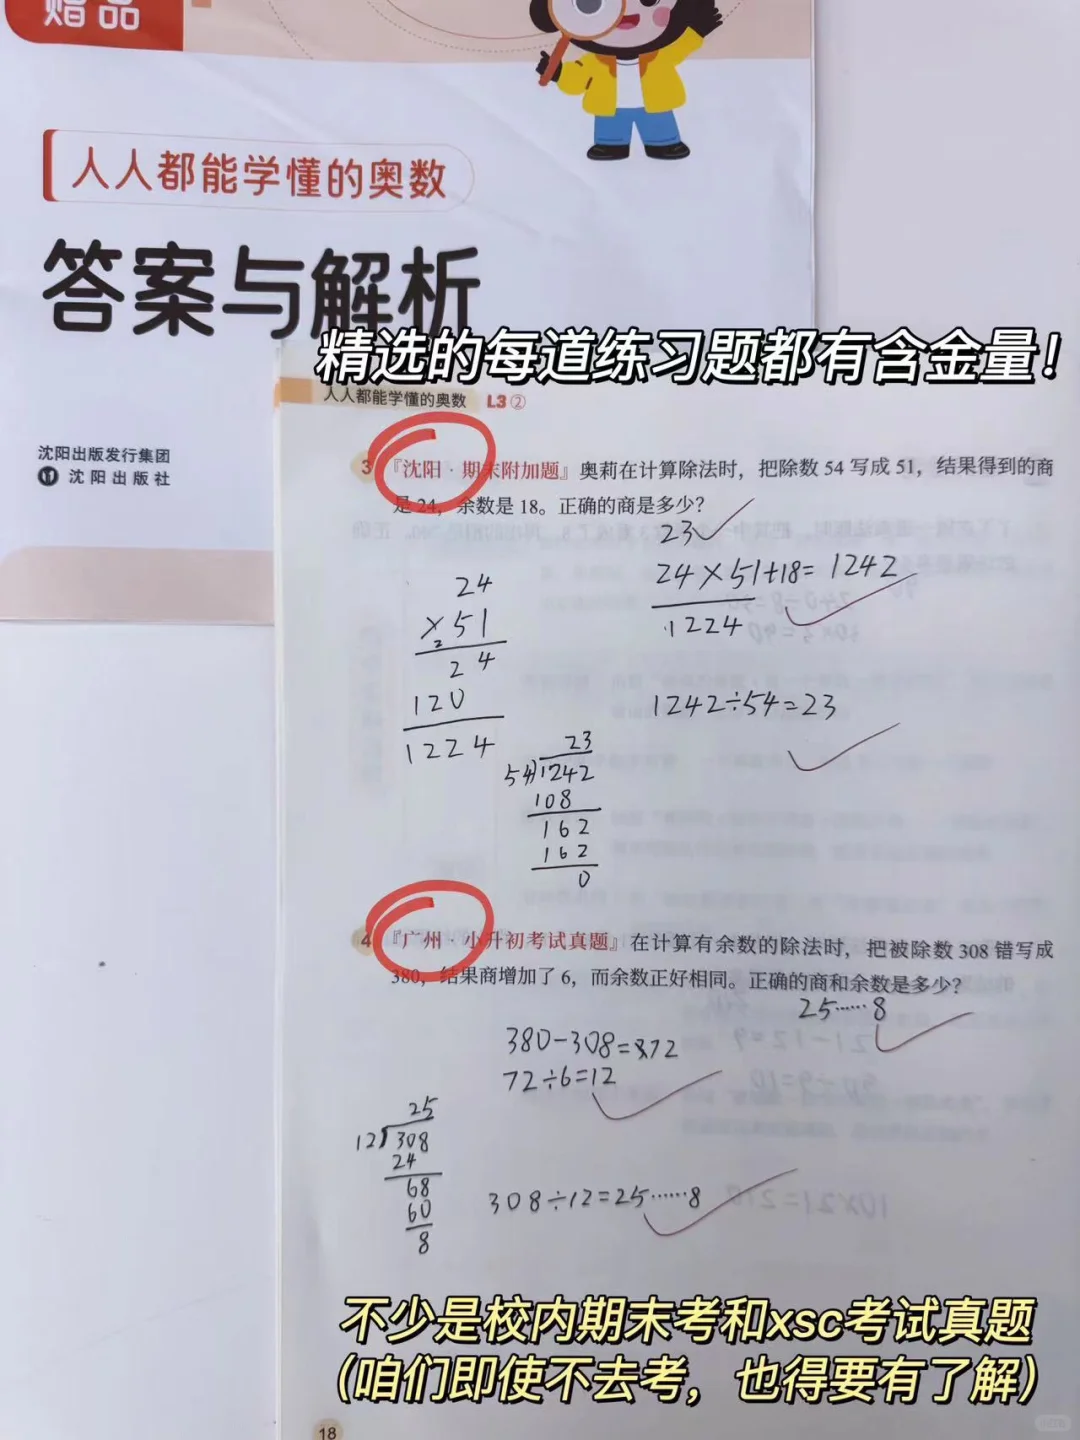 赠品
人人都能学懂的奥数
答案与解析
精选的每道练习题都有含金量！
沈阳出版发行集团
沈阳出版社
人人都能学懂的奥数 L3②
3 『沈阳·期末附加题』奥莉在计算除法时，把除数 54 写成 51，结果得到的商
是 24，余数是 18。正确的商是多少？
23
24×51+18=1242
1224
24
×51
2
24
120
1224
1242÷54=23
23
54)1242
108
162
162
0
4 『广州·小升初考试真题』在计算有余数的除法时，把被除数 308 错写成
380，结果商增加了 6，而余数正好相同。正确的商和余数是多少？
25……8
380-308=72
72÷6=12
25
12)308
24
68
60
8
308÷12=25……8
不少是校内期末考和xsc考试真题
（咱们即使不去考，也得要有了解）
18